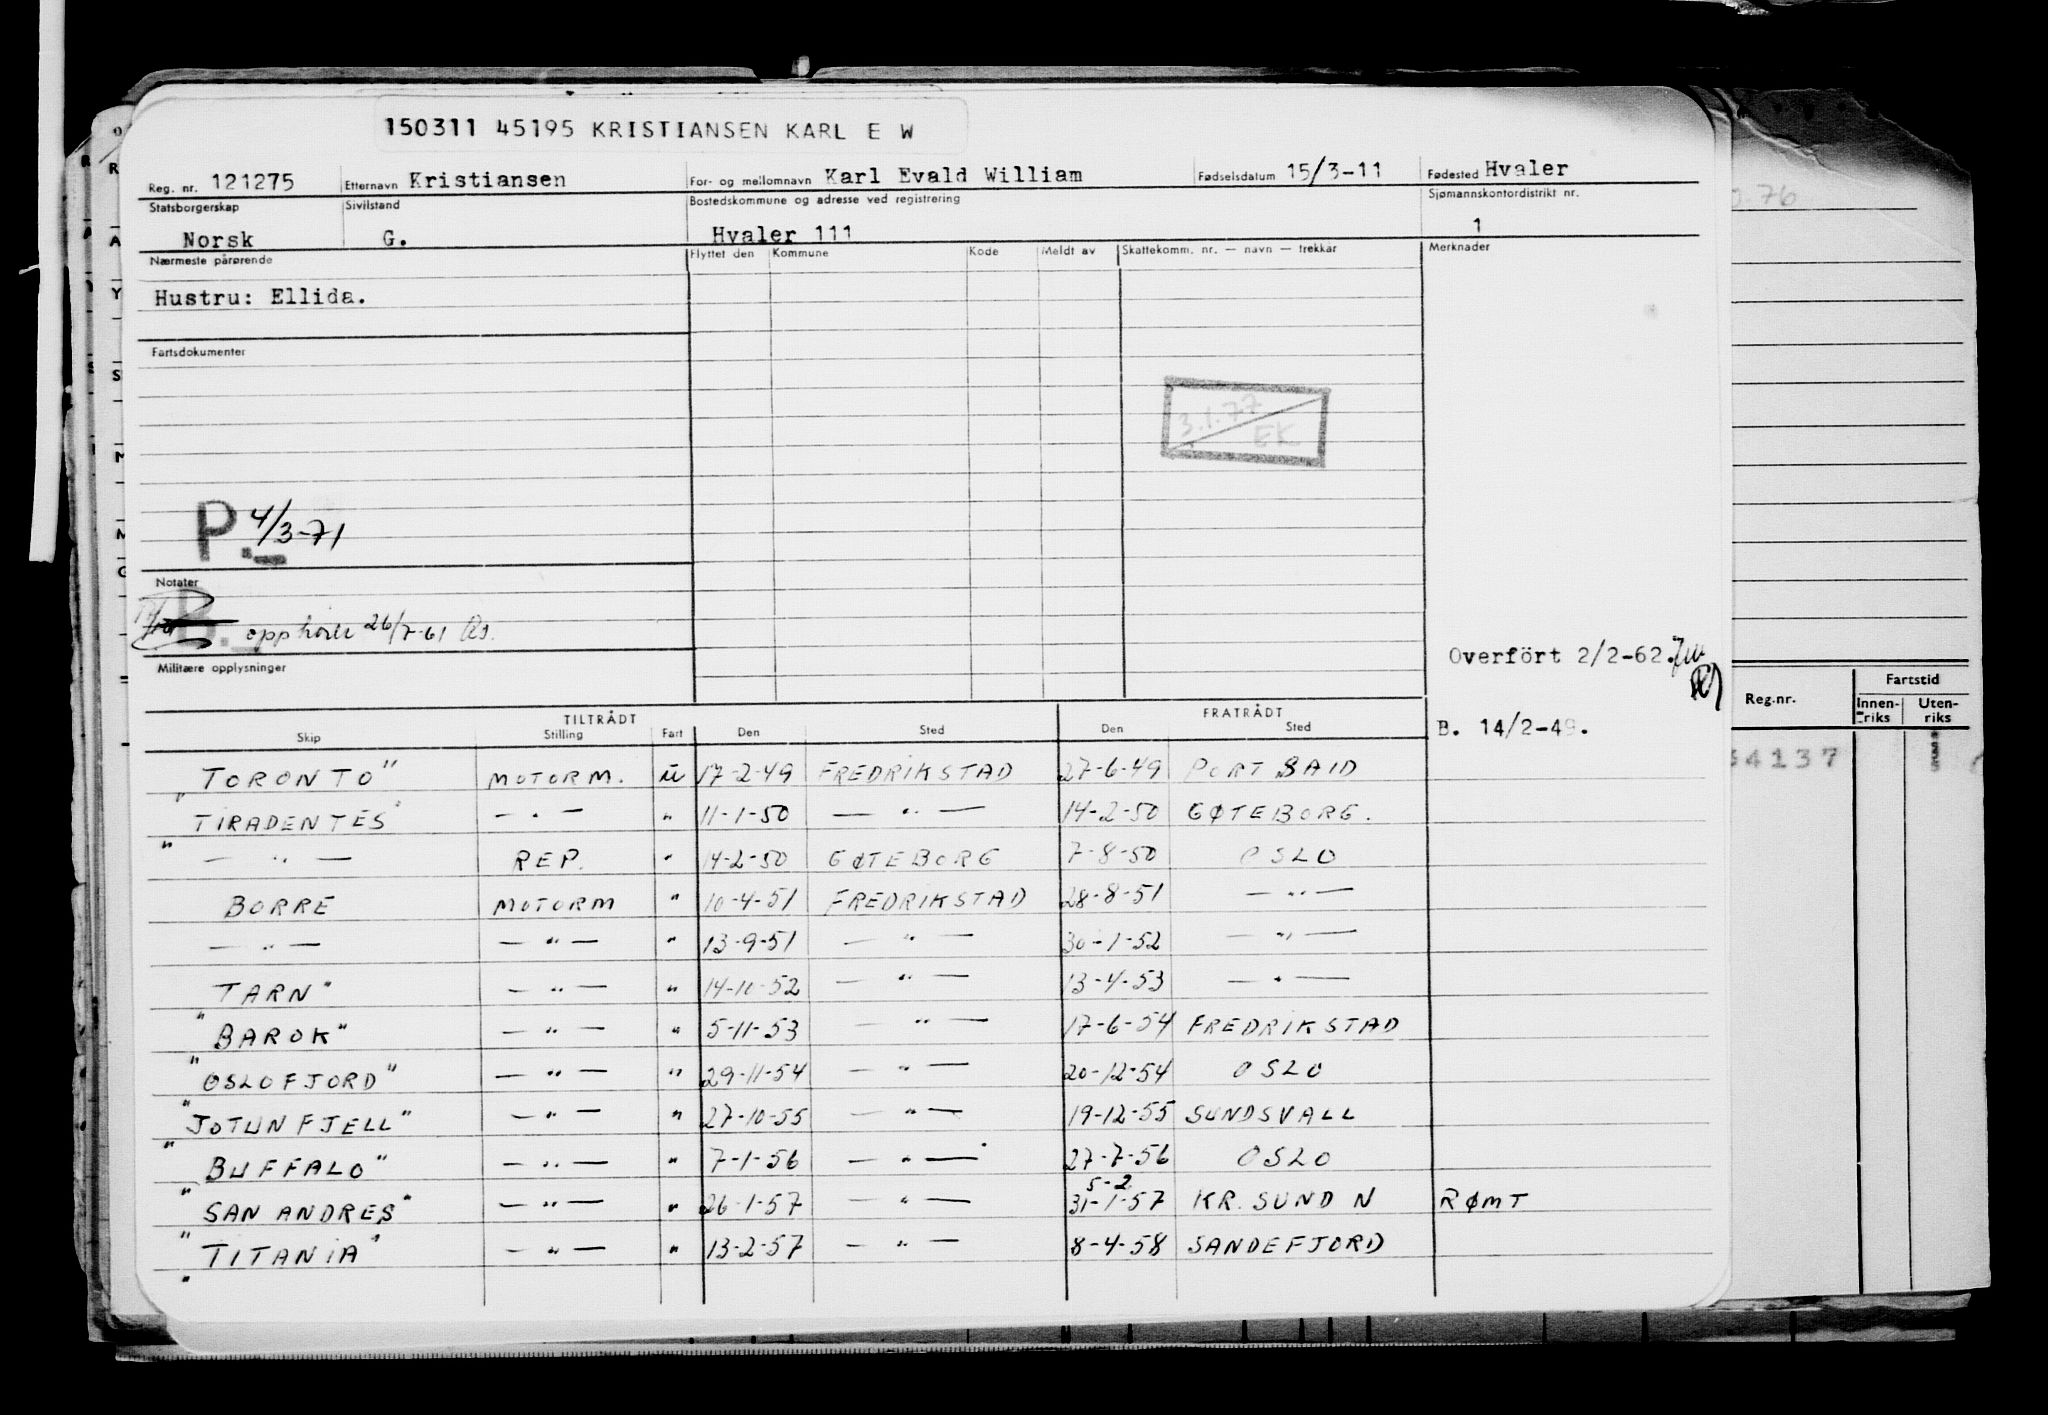 150311 45195 KRISTIANSEN KARL E W
Reg. nr. 121275 Etternavn Kristiansen For- og mellomnavn Karl Evald William Fødselsdatum 15/3-11 Fødested Hvaler
Statsborgerskap Sivilstand Bostedskommune og adresse ved registrering Sjømannskontordistrikt nr.
Norsk G. Hvaler 111 1
Nærmeste pårørende Flyttet den Kommune Kode Meldt av Skattekomm. nr. — navn — trekkår Merknader
Hustru: Ellida.
Fartsdokumenter
3.1.77
EK
P. 4/3-71
Notater
B. opphørte 26/7-61
Militære opplysninger
Overfört 2/2-62.
TILTRÅDT FRATRÅDT
Skip Stilling Fart Den Sted Den Sted
B. 14/2-49.
"TORONTO" MOTORM. U 17-2-49 FREDRIKSTAD 27-6-49 PORT SAID
"TIRADENTES" — " — " 11-1-50 — " — 14-2-50 GØTEBORG.
— " — REP. " 14-2-50 GØTEBORG 7-8-50 OSLO
BORRE MOTORM " 10-4-51 FREDRIKSTAD 28-8-51 — " —
— " — — " — " 13-9-51 — " — 30-1-52 — " —
TARN" — " — " 14-10-52 — " — 13-4-53 — " —
"BAROK" — " — " 5-11-53 — " — 17-6-54 FREDRIKSTAD
"OSLOFJORD" — " — " 29-11-54 — " — 20-12-54 OSLO
"JOTUNFJELL" — " — " 27-10-55 — " — 19-12-55 SUNDSVALL
"BUFFALO" — " — " 7-1-56 — " — 27-7-56 OSLO
5-2
"SAN ANDRES" — " — " 26-1-57 — " — 31-1-57 KR. SUND N RØMT
"TITANIA" — " — " 13-2-57 — " — 8-4-58 SANDEFJORD
Reg.nr. Fartstid
Innenriks Utenriks
4137